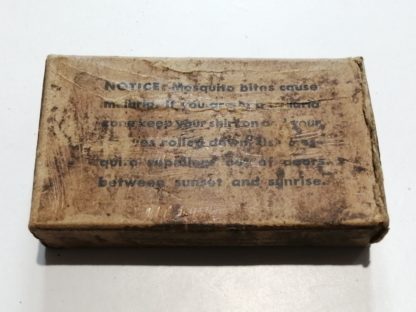 NOTICE: Mosquito bites cause
malaria. If you are in a malaria
zone keep your shirt on and your
sleeves rolled down. Use mos-
quito repellent out of doors
between sunset and sunrise.